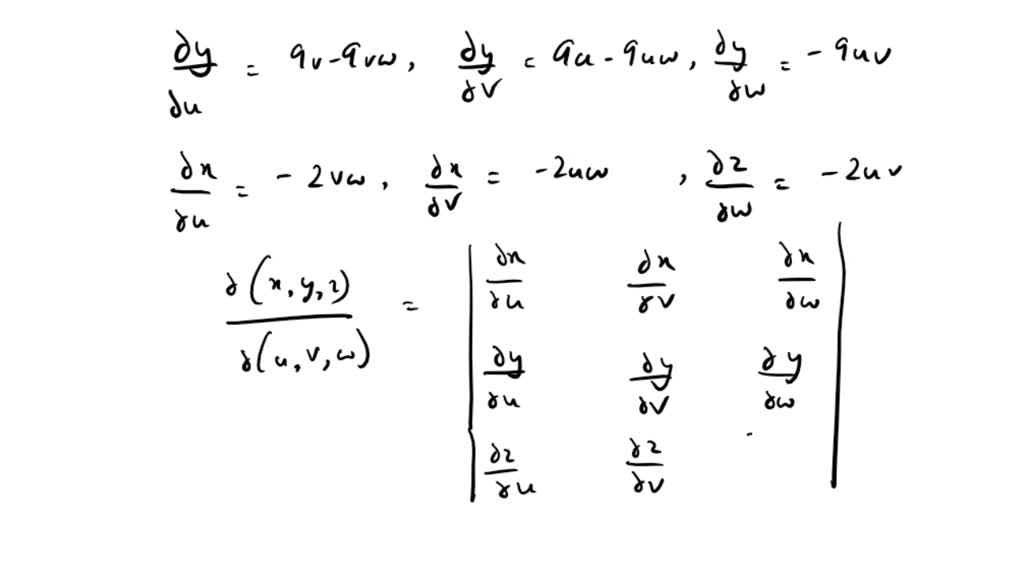 ∂y/∂u = 9v - 9vw, ∂y/∂v = 9u - 9uw, ∂y/∂w = -9uv
∂x/∂u = -2vw, ∂x/∂v = -2uw, ∂z/∂w = -2uv
∂(x, y, z)/∂(u, v, w) = | ∂x/∂u ∂x/∂v ∂x/∂w |
| ∂y/∂u ∂y/∂v ∂y/∂w |
| ∂z/∂u ∂z/∂v |